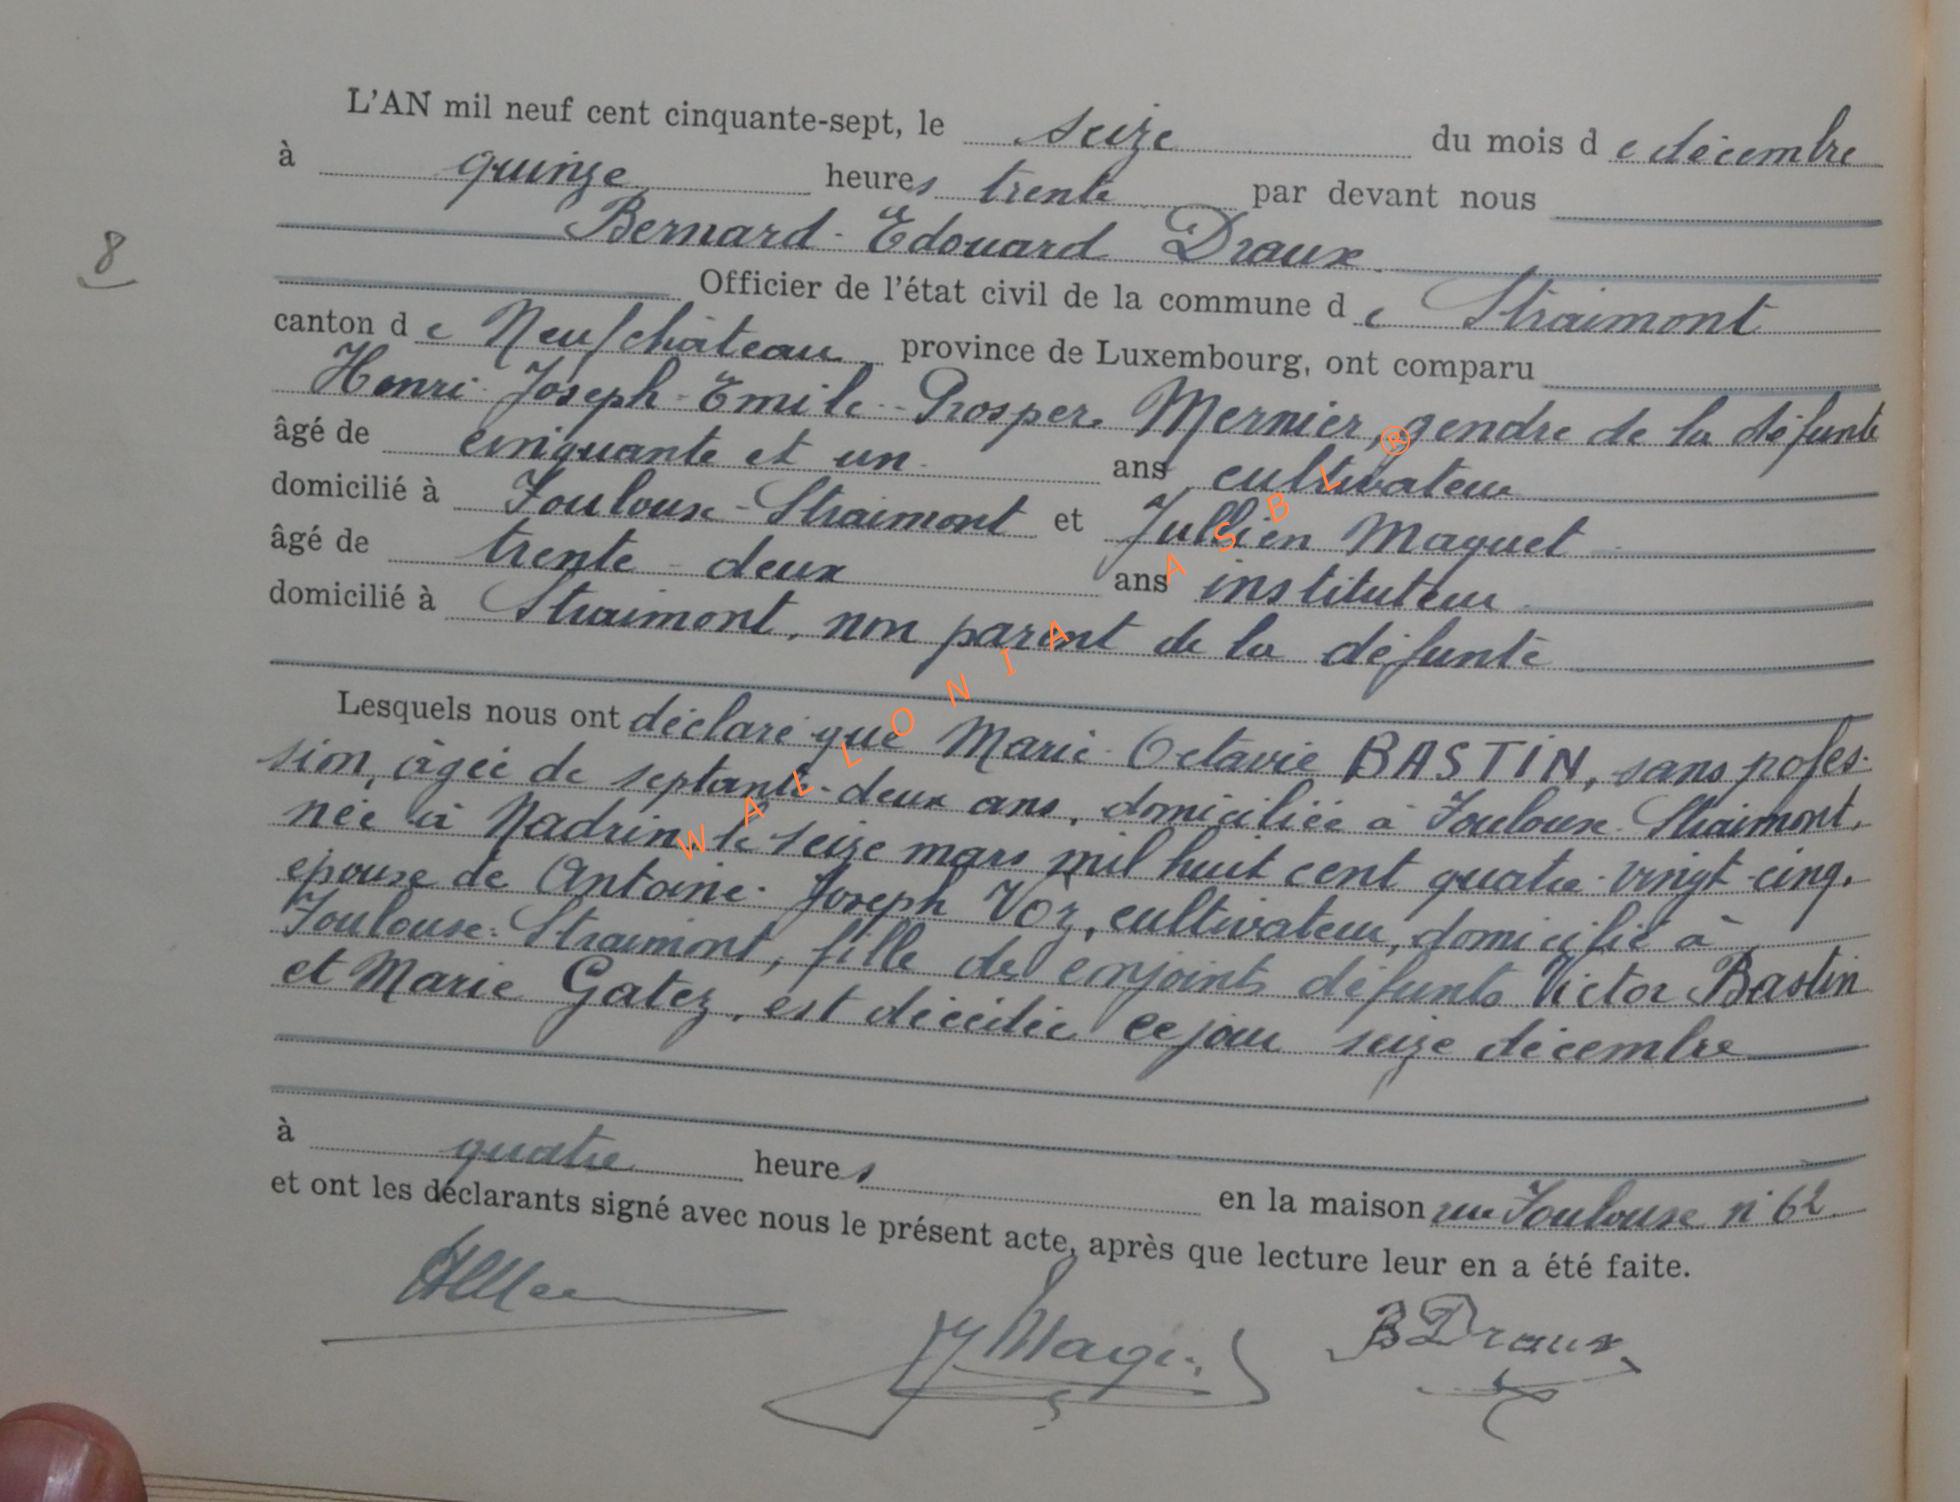 L'AN mil neuf cent cinquante-sept, le seize du mois de décembre
à quinze heures trente par devant nous
Bernard-Edouard Draux
8
Officier de l'état civil de la commune de Straimont
canton de Neufchâteau province de Luxembourg, ont comparu
Henri-Joseph-Emile-Prosper Mernier, gendre de la défunte
âgé de cinquante et un ans cultivateur
domicilié à Toulouse-Straimont et Jullien Maquet
âgé de trente-deux ans instituteur
domicilié à Straimont, non parent de la défunte
Lesquels nous ont déclaré que Marie-Octavie BASTIN, sans pofes-
sion, âgée de septante-deux ans, domiciliée à Toulouse-Straimont,
née à Nadrin le seize mars mil huit cent quatre-vingt-cinq,
épouse de Antoine-Joseph Voz, cultivateur, domicilié à
Toulouse-Straimont, fille de conjoints défunts Victor Bastin
et Marie Gatez, est décédée ce jour seize décembre
à quatre heures en la maison rue Toulouse n° 62
et ont les déclarants signé avec nous le présent acte, après que lecture leur en a été faite.
B Draux
WALLONIA ASBL ®